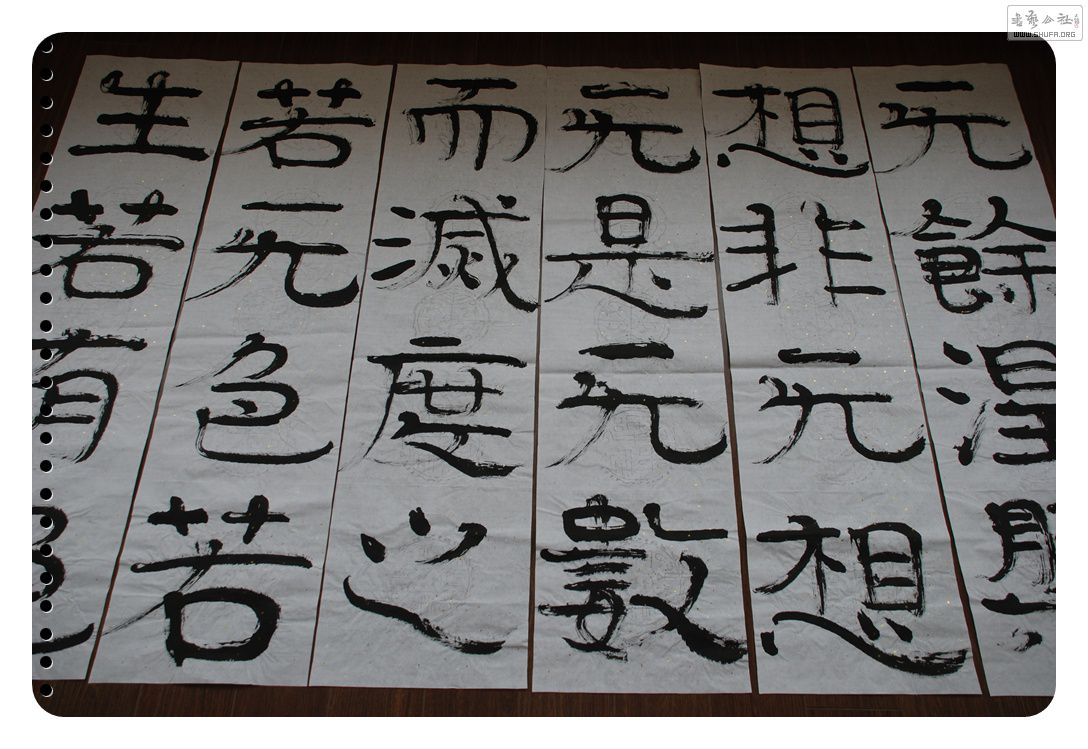 无餘涅
想非无想
无是无數
而滅度之
若无色若
生若有
書藝公社
WWW.SHUFA.ORG